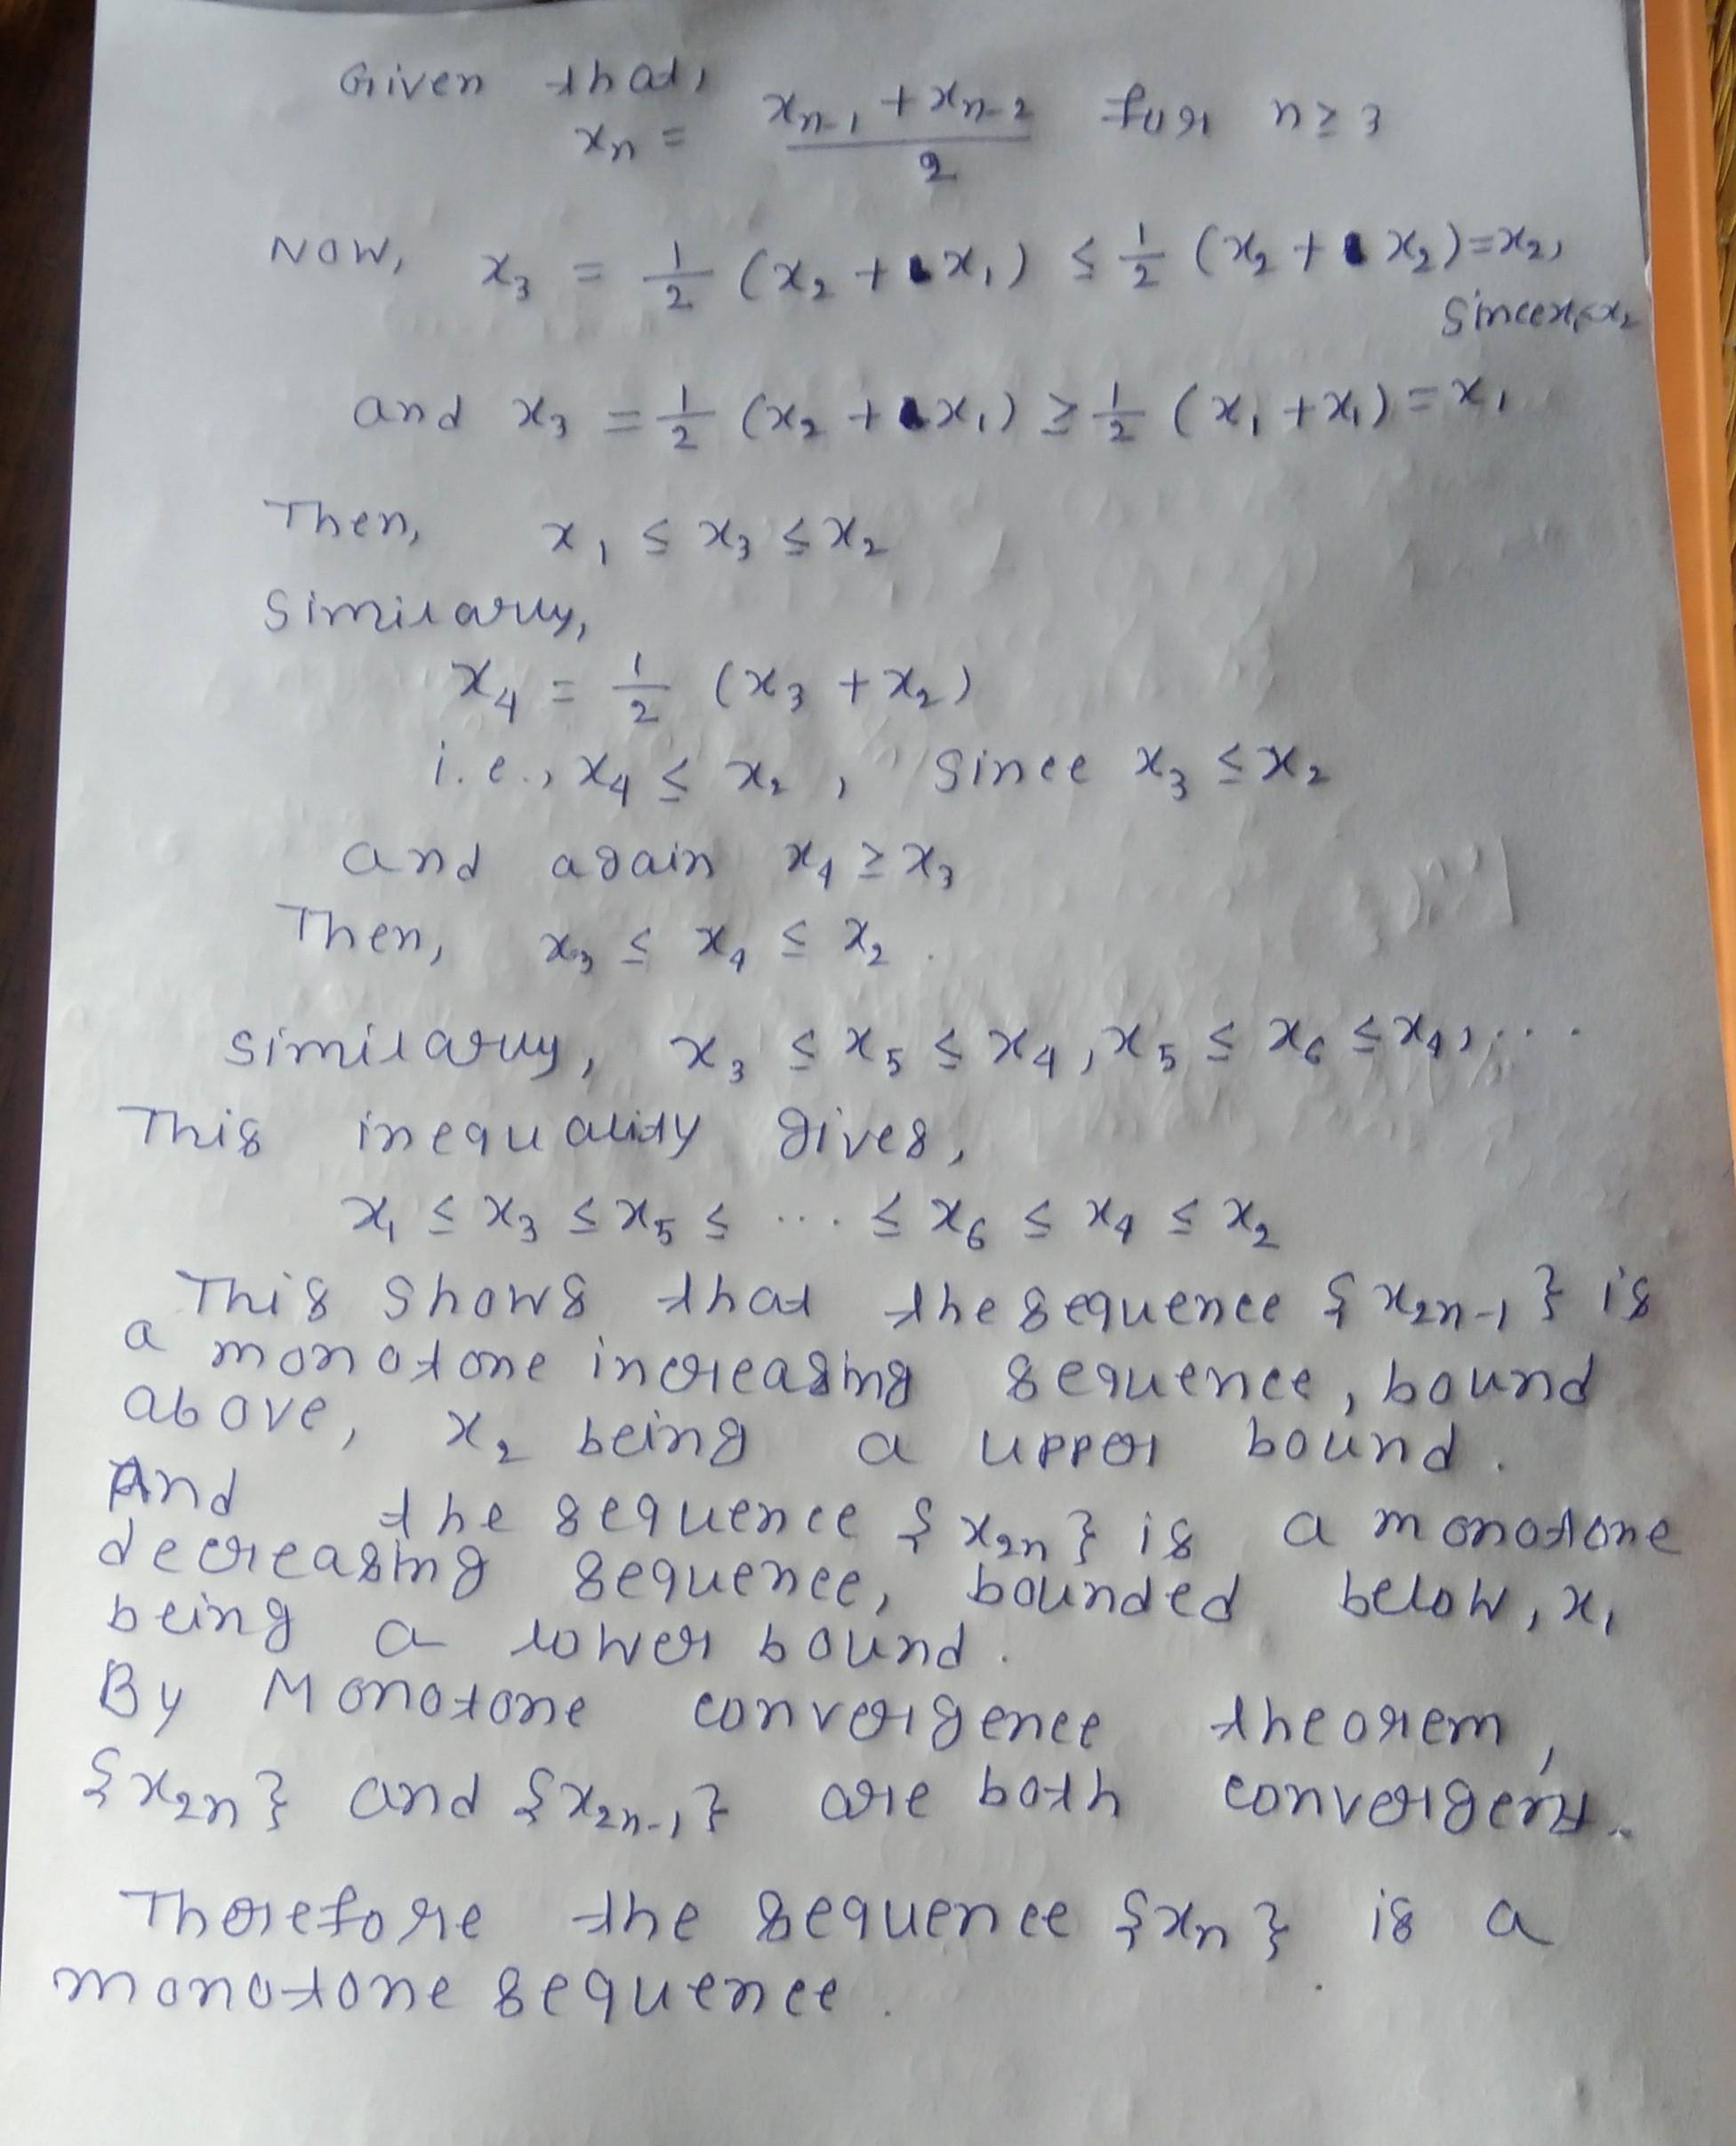 Given that,
xn = (xn-1 + xn-2)/2 for n ≥ 3
Now, x3 = 1/2 (x2 + x1) ≤ 1/2 (x2 + x2) = x2,
since x1 < x2
and x3 = 1/2 (x2 + x1) ≥ 1/2 (x1 + x1) = x1
Then, x1 ≤ x3 ≤ x2
Similarly,
x4 = 1/2 (x3 + x2)
i.e., x4 ≤ x2, since x3 ≤ x2
and again x4 ≥ x3
Then, x3 ≤ x4 ≤ x2.
similarly, x3 ≤ x5 ≤ x4, x5 ≤ x6 ≤ x4, ...
This inequality gives,
x1 ≤ x3 ≤ x5 ≤ ... ≤ x6 ≤ x4 ≤ x2
This shows that the sequence {x2n-1} is
a monotone increasing sequence, bound
above, x2 being a upper bound.
And the sequence {x2n} is a monotone
decreasing sequence, bounded below, x1
being a lower bound.
By Monotone convergence theorem,
{x2n} and {x2n-1} are both convergent.
Therefore the sequence {xn} is a
monotone sequence.